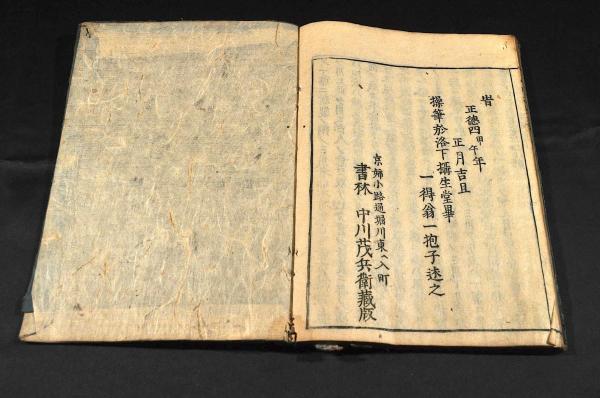 旹
正德四甲午年
正月吉旦
操筆於洛下攝生堂畢
一得翁一抱子述之
京姉小路通堀川東ヘ入町
書林 中川茂兵衛藏版